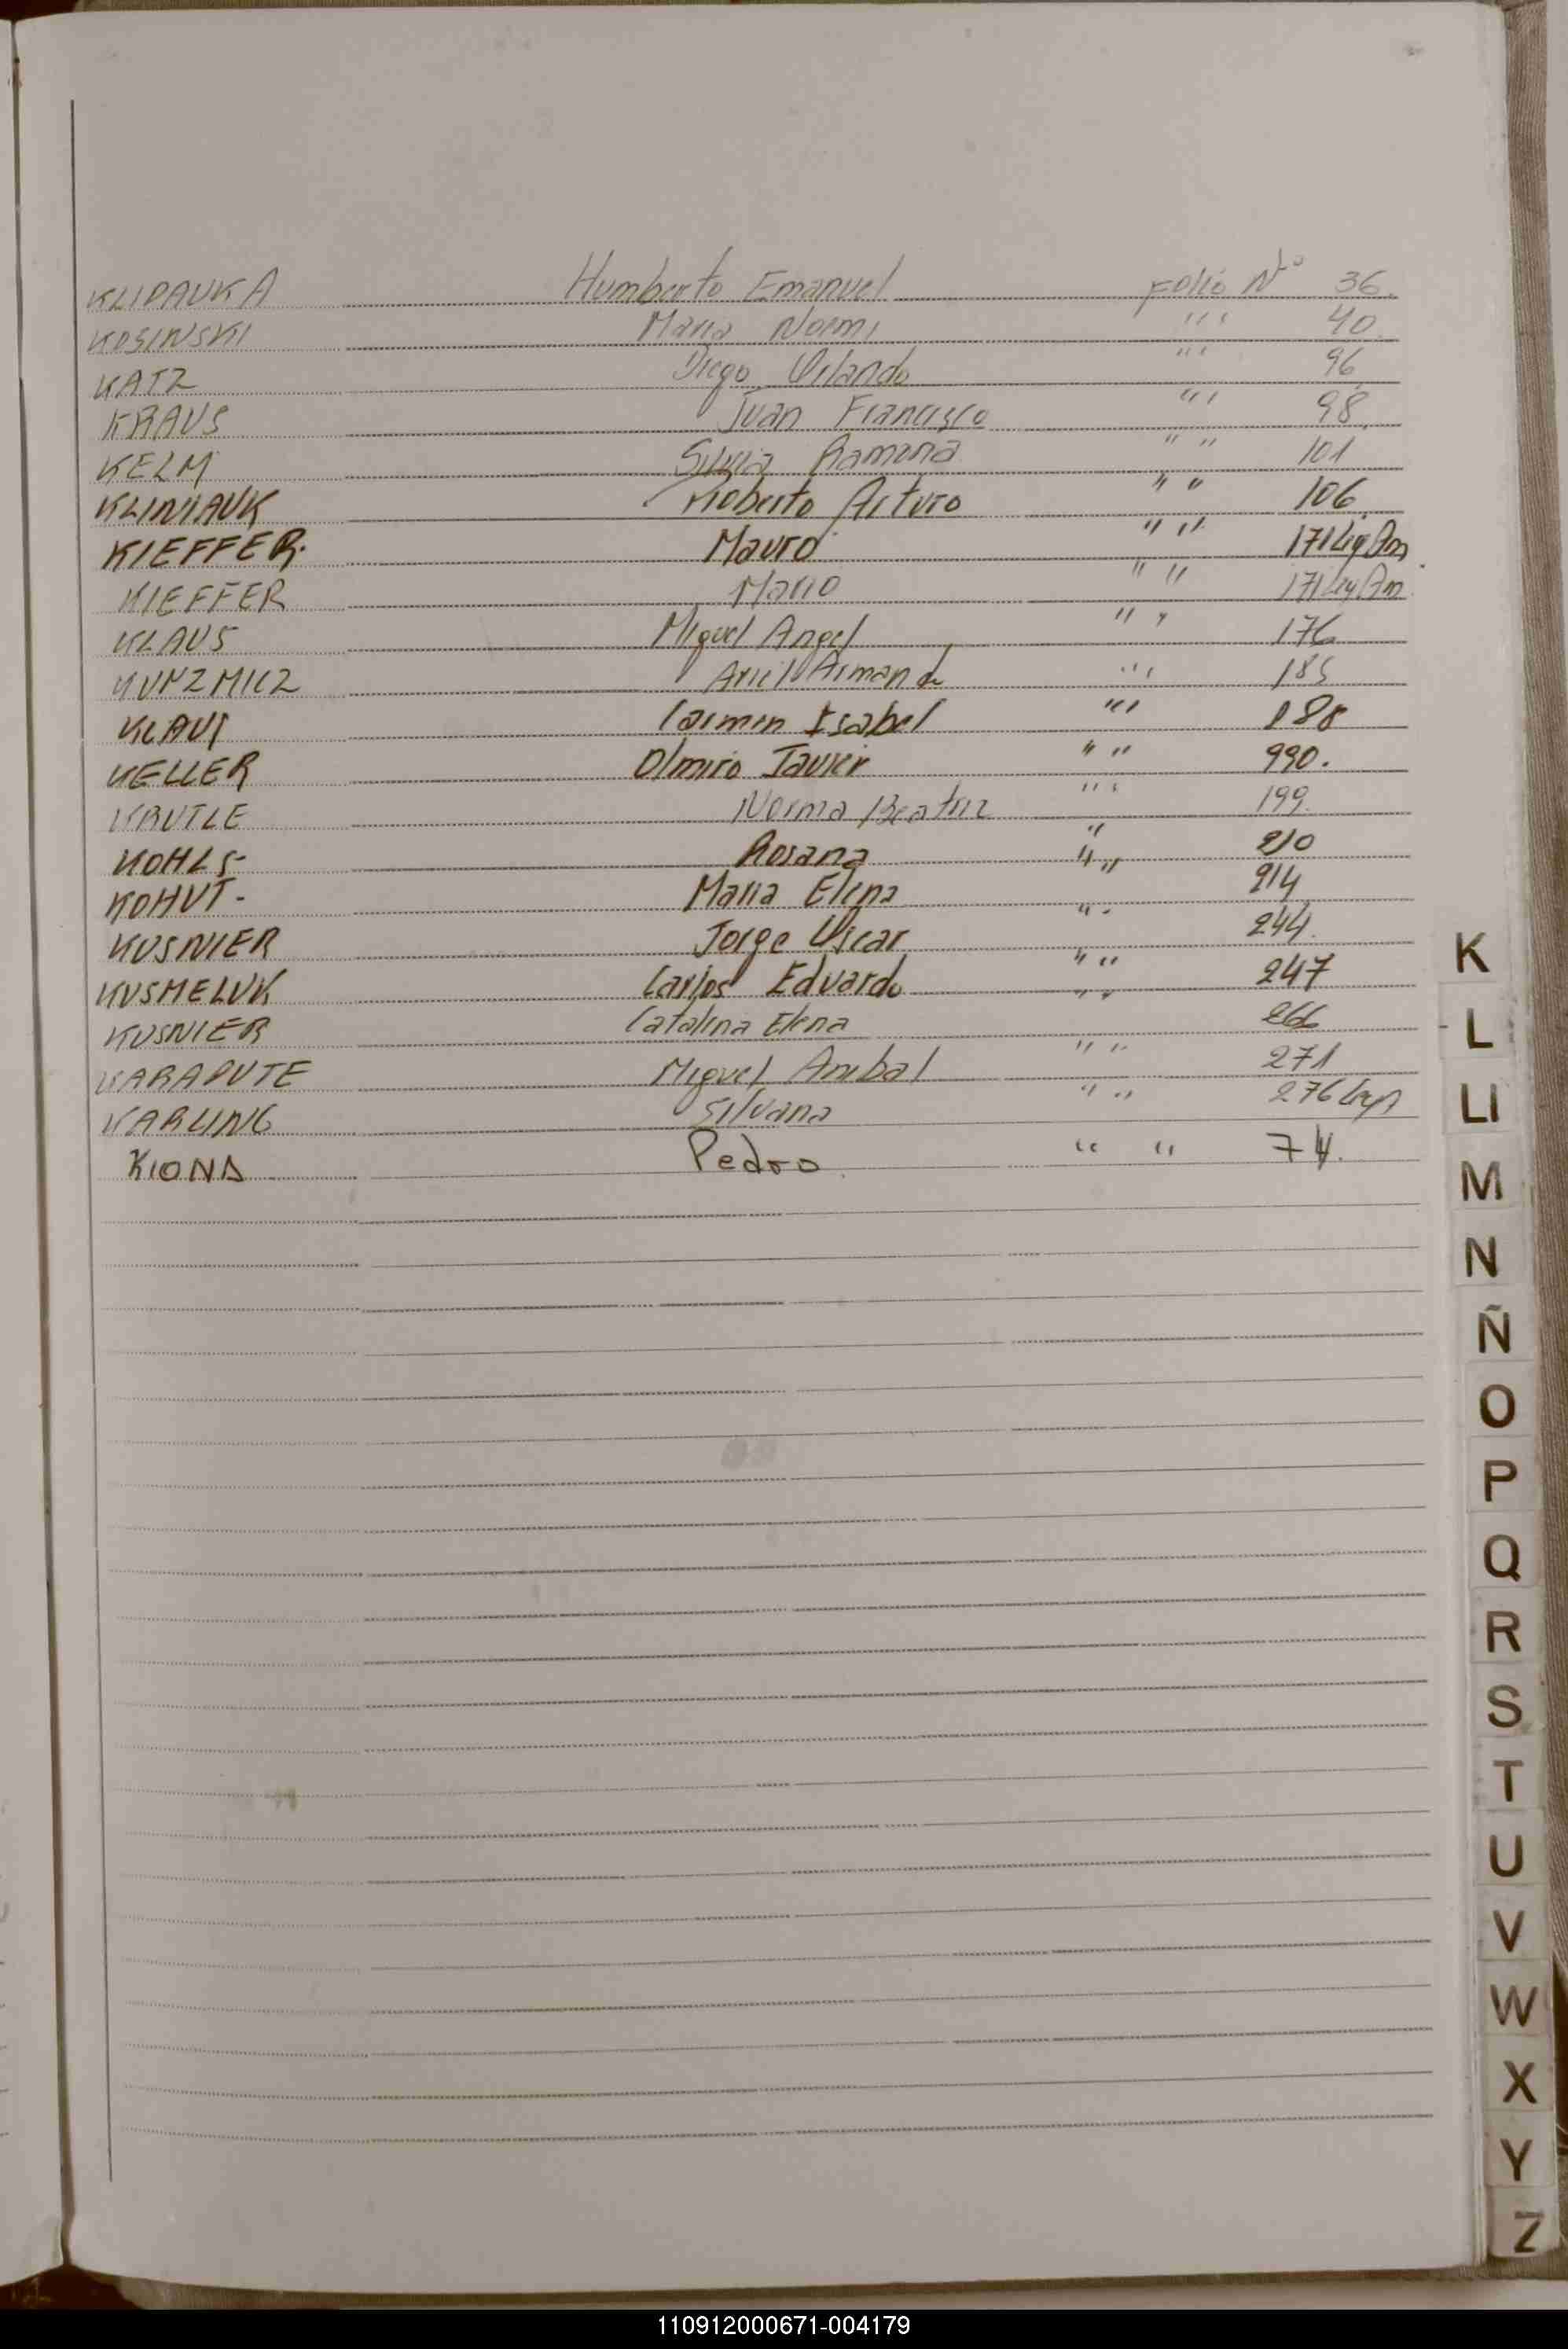 KLIPAUKA Humberto Emanuel Folio Nº 36.
KOSINSKI Maria Noemi " " 40.
KATZ Diego Orlando " " 96
KRAUS Juan Francisco " " 98.
KELM Silvia Ramona " " 101
KLIMIAUK Roberto Arturo " " 106
KIEFFER. Mauro " " 171
KIEFFER Mario " " 171
KLAUS Miguel Angel " " 176
Ariel Armando " " 185
KLAUS Carmen Isabel " " 188
KELLER Olmiro Javier " " 990.
KRUTLE Norma Beatriz " " 199.
KOHLS Rosana " 210
KOHUT- Maria Elena " " 214
KUSNIER Jorge Oscar " " 244.
KUSMELUK Carlos Eduardo " " 247
KUSNIER Catalina Elena " " 266
KARAPUTE Miguel Anibal " " 271
KARLING Silvana " " 276
KIONA Pedro " " 74.
K
L
Ll
M
N
Ñ
O
P
Q
R
S
T
U
V
W
X
Y
Z
110912000671-004179